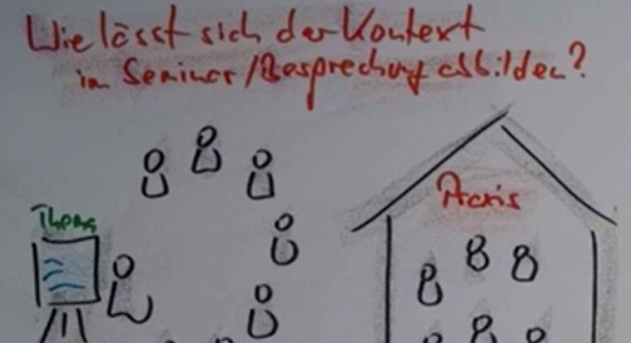 Wie lässt sich der Kontext
im Seminar/Besprechung abbilden?
Thema
Praxis